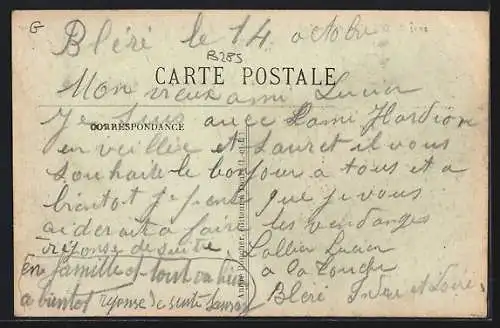 G
Bléré le 14 octobre
B285
CARTE POSTALE
Mon vieux ami Lucien
Je suis avec l'ami Hardion
CORRESPONDANCE
en veillée et Sauret il vous
souhaite le bonjour a tous et a
bientot je pense que je vous
aiderait a faire les vendanges
réponse de suite
Lallier Lucien
en famille et tout va bien
a la
Bléré Indre et Loire
a bientot reponse de suite